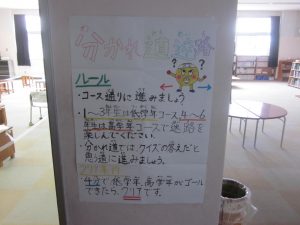 分かれ道迷路
? ?
ルール
・コース通りに進みましょう
・1〜3年生は低学年コース4〜6
年生は高学年コースで迷路を
楽しんでください。
・分かれ道では、クイズの答えだと
思う道に進みましょう。
クリア条件
4分で低学年、高学年がゴール
できたら、クリアです。